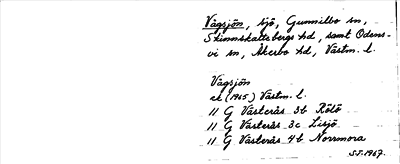 Vågsjön, sjö, Gunnilbo sn,
Skinnskattebergs hd, samt Odens-
vi sn, Åkerbo hd, Västm. l.
Vågsjön
ek (1965) Västm. l.
11 G Västerås 3b Rölö
11 G Västerås 3c Lisjö
11 G Västerås 4b Norrmora
S.S. 1967.